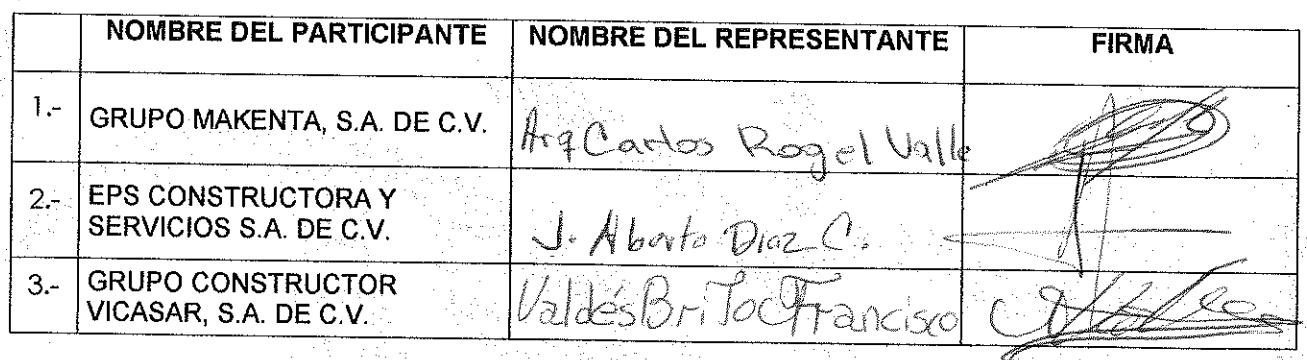 NOMBRE DEL PARTICIPANTE NOMBRE DEL REPRESENTANTE FIRMA
1.- GRUPO MAKENTA, S.A. DE C.V. Arq Carlos Rogel Valle
2.- EPS CONSTRUCTORA Y
SERVICIOS S.A. DE C.V. J. Alberto Diaz C.
3.- GRUPO CONSTRUCTOR
VICASAR, S.A. DE C.V. Valdés Brito Francisco